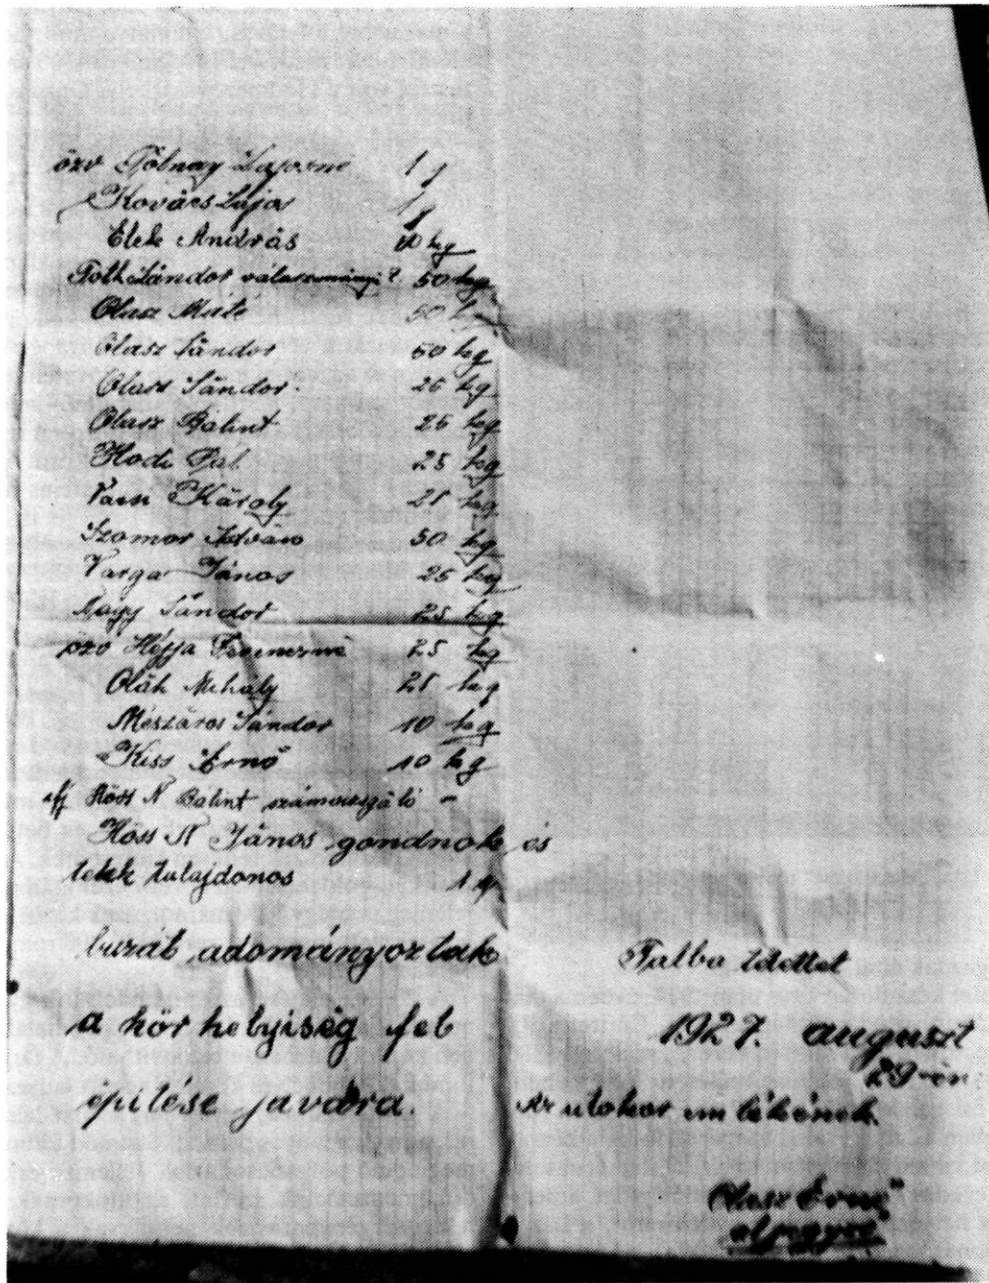 özv Tolnay Lajosné 1 q
Kovács Lajos 1 q
Elek András 10 kg
Tóth Sándor választmányi? 50 kg
Olasz Máté 50 kg
Olasz Sándor 50 kg
Olasz Sándor. 26 kg
Olasz Bálint 26 kg
Hodi Pál 25 kg
Károly 25 kg
Szomor István 50 kg
Varga János 25 kg
Nagy Sándor 25 kg
özv Héjja Ferencné 25 kg
Oláh Mihály 25 kg
Mészáros Sándor 10 kg
Kiss Ernő 10 kg
ifj Köss N Bálint számvizsgáló –
Köss N János gondnok és
telek tulajdonos 1 q
buzát adományoztak
a kör helyiség fel
építése javára.
Falba tétettet
1927. auguszt
29-én
Az utokor emlékének.
Olasz Ernő
aljegyző